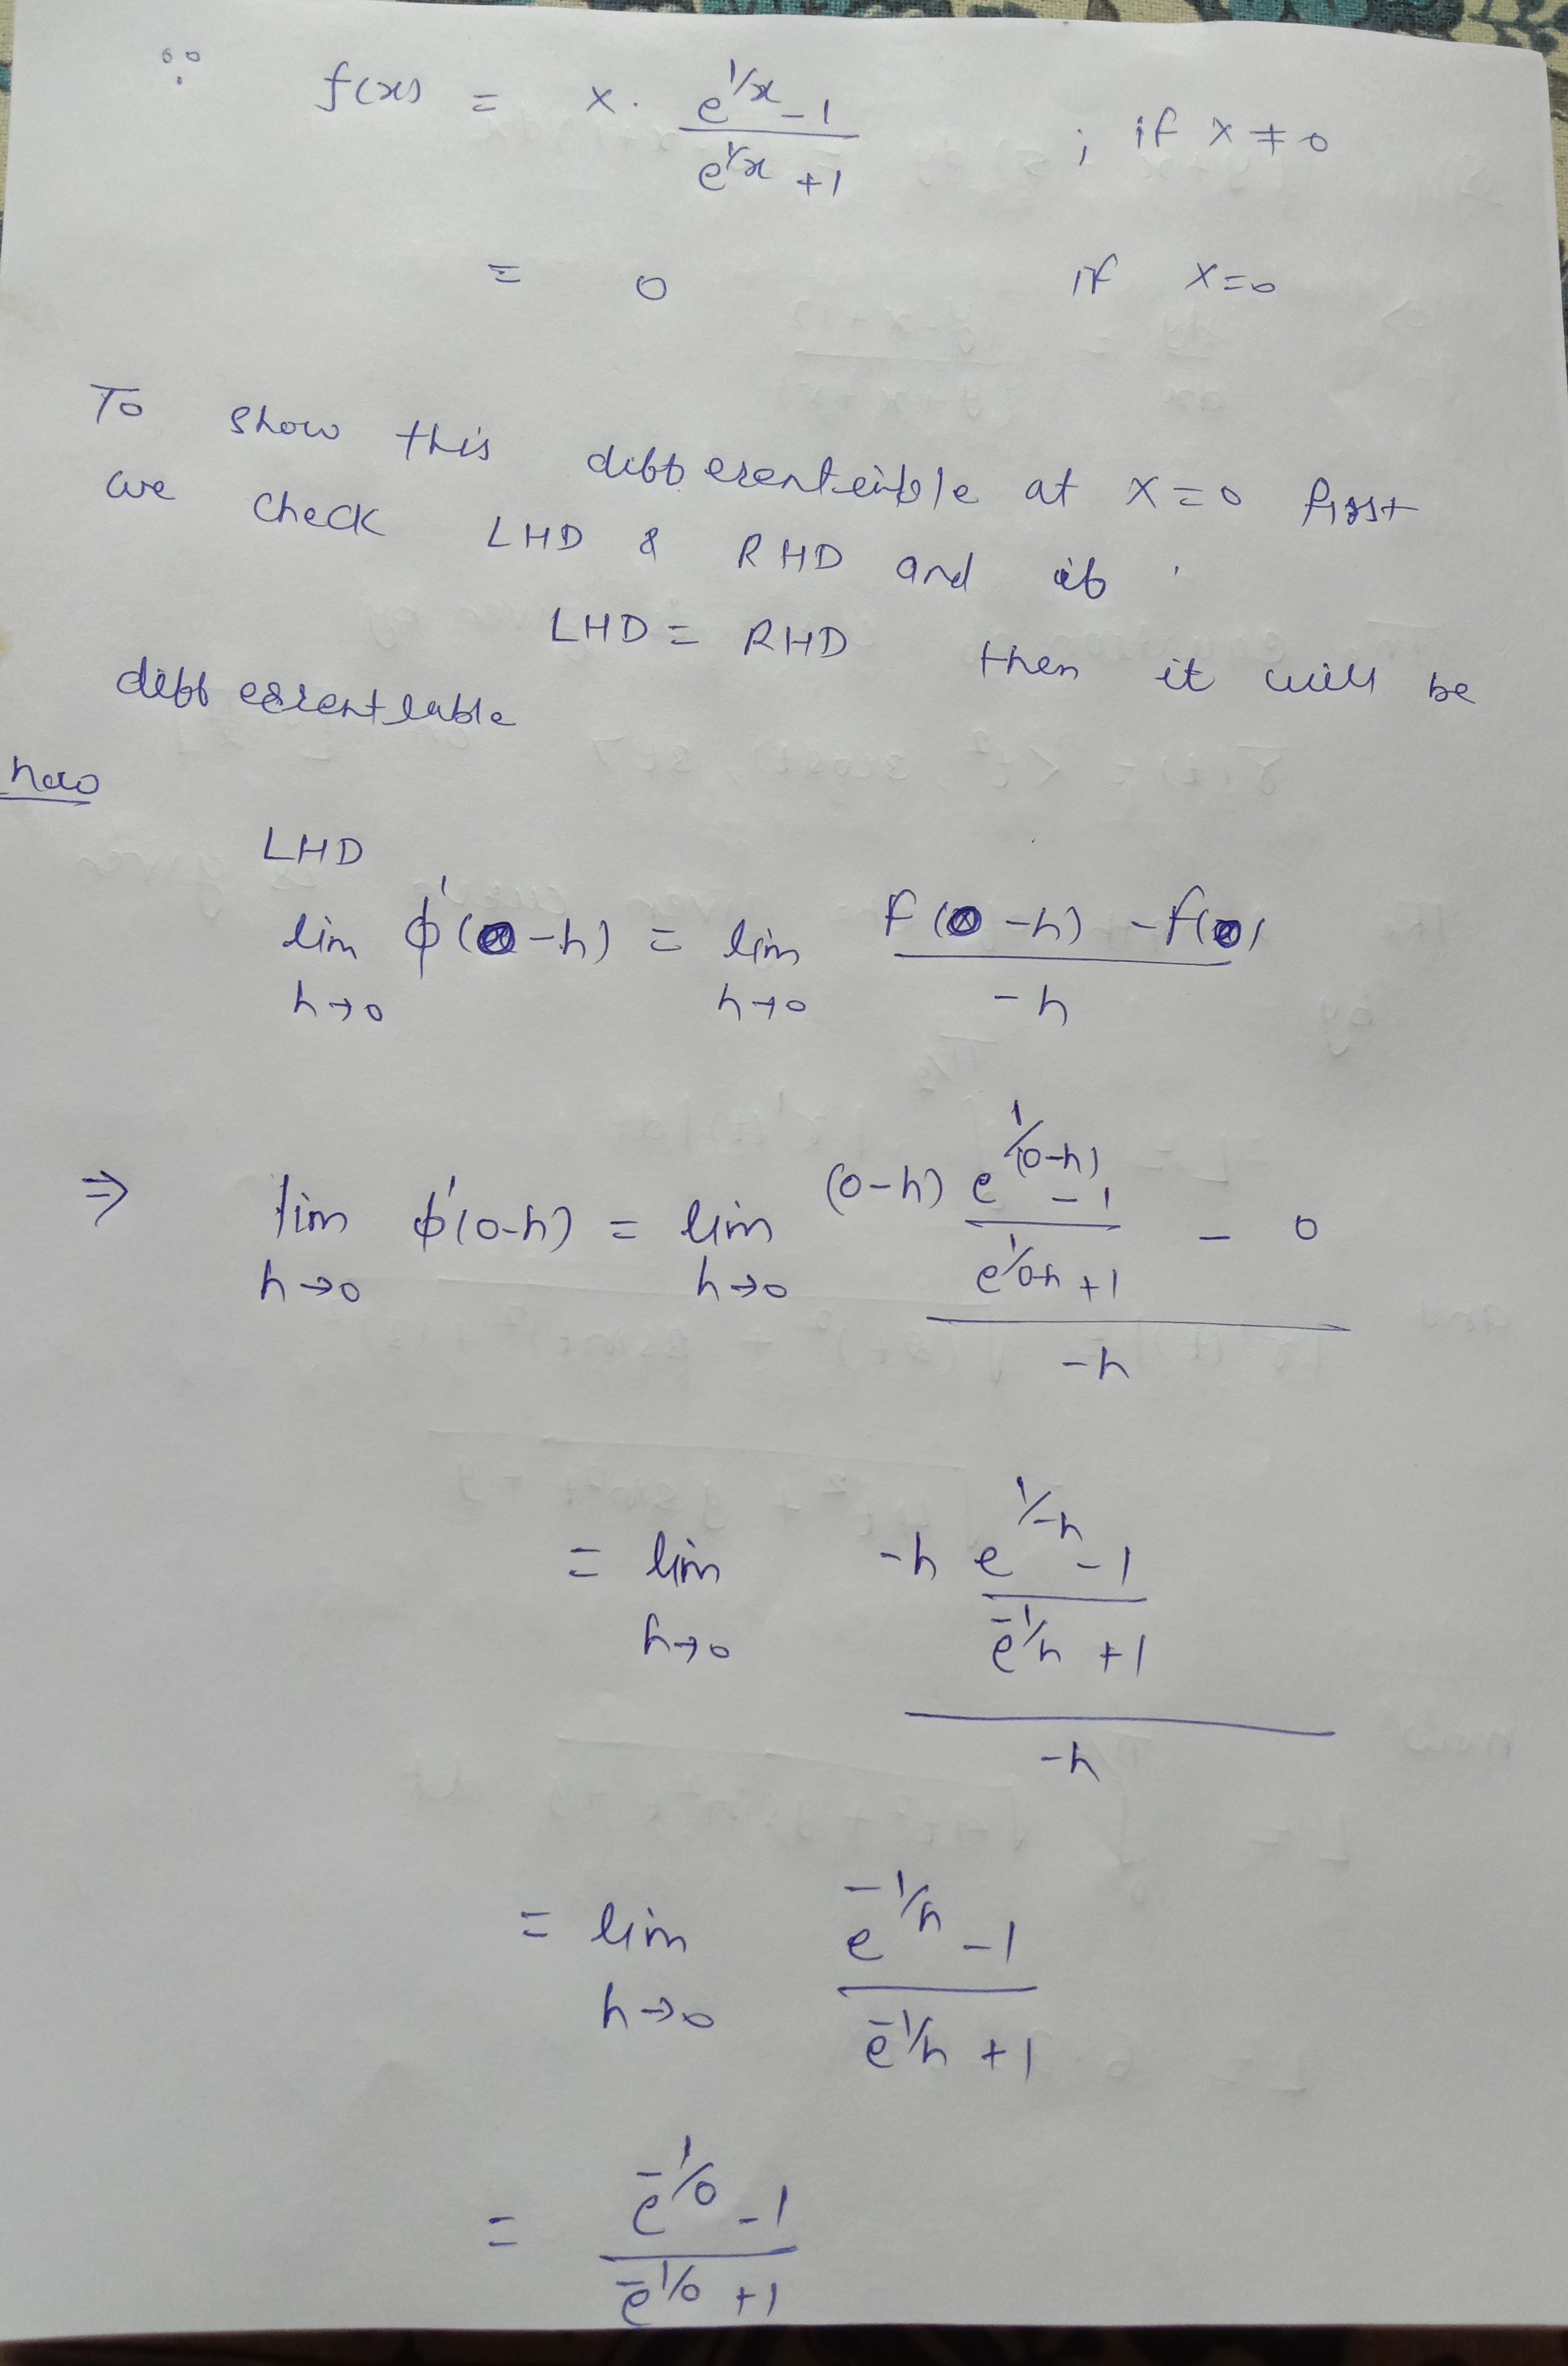 ∵ f(x) = x · (e^{1/x} - 1)/(e^{1/x} + 1) ; if x ≠ 0
= 0 if x=0
To show this differentiable at x=0 first
we check LHD & RHD and if
LHD = RHD then it will be
differentiable
now
LHD
lim_{h→0} ϕ'(0-h) = lim_{h→0} (f(0-h) - f(0))/(-h)
⇒ lim_{h→0} ϕ'(0-h) = lim_{h→0} ((0-h) (e^{1/(0-h)} - 1)/(e^{1/0-h} + 1) - 0)/(-h)
= lim_{h→0} (-h (e^{1/-h} - 1)/(e^{-1/h} + 1))/(-h)
= lim_{h→0} (e^{-1/h} - 1)/(e^{-1/h} + 1)
= (e^{-1/0} - 1)/(e^{-1/0} + 1)